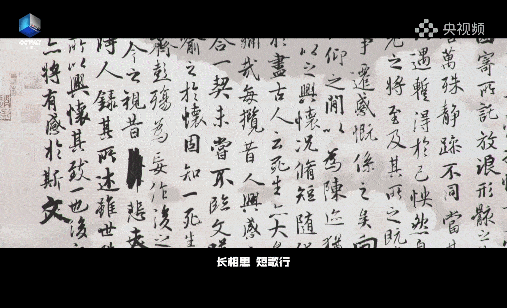 央视频
CCTV
因寄所託放浪形骸之
萬殊靜躁不同當其
遇暫得於己怏然自
老之將至及其所之既
事遷感慨係之矣向
仰之間以為陳迹猶
以之興懷況脩短隨
於盡古人云死生亦大
痛哉每攬昔人興感
合一契未嘗不臨文嗟
喻之於懷固知一死生
齊彭殤為妄作後之
今之視昔悲夫
時人錄其所述雖世
所以興懷其致一也後
亦將有感於斯文
长相思 短歌行